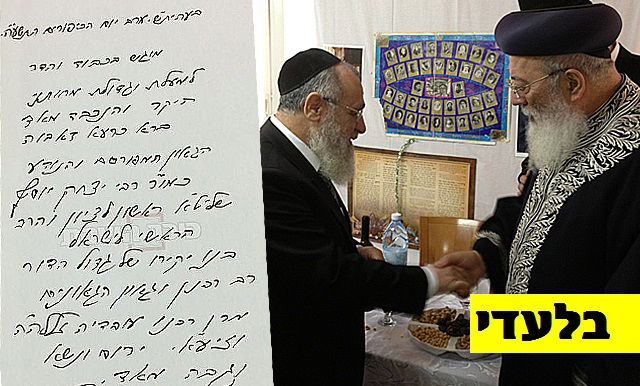 בעה״ית״ש. ערב יום הכיפורים התשע״ה.
מוגש בכבוד והדר
למעלת וגדולת
היקר והנכבד מאד
ברא כרעא דאבוה
הגאון המפורסם והנודע
כמו״ר רבי יצחק יוסף
שליט״א ראשון לציון והרב
הראשי לישראל
בנו יקירו של גדול הדור
רב רבנן וגאון הגאונים
מרן רבנו עובדיה זללה״ה
וזיע״א. ירום ונשא
וגבה מאד
בלעדי